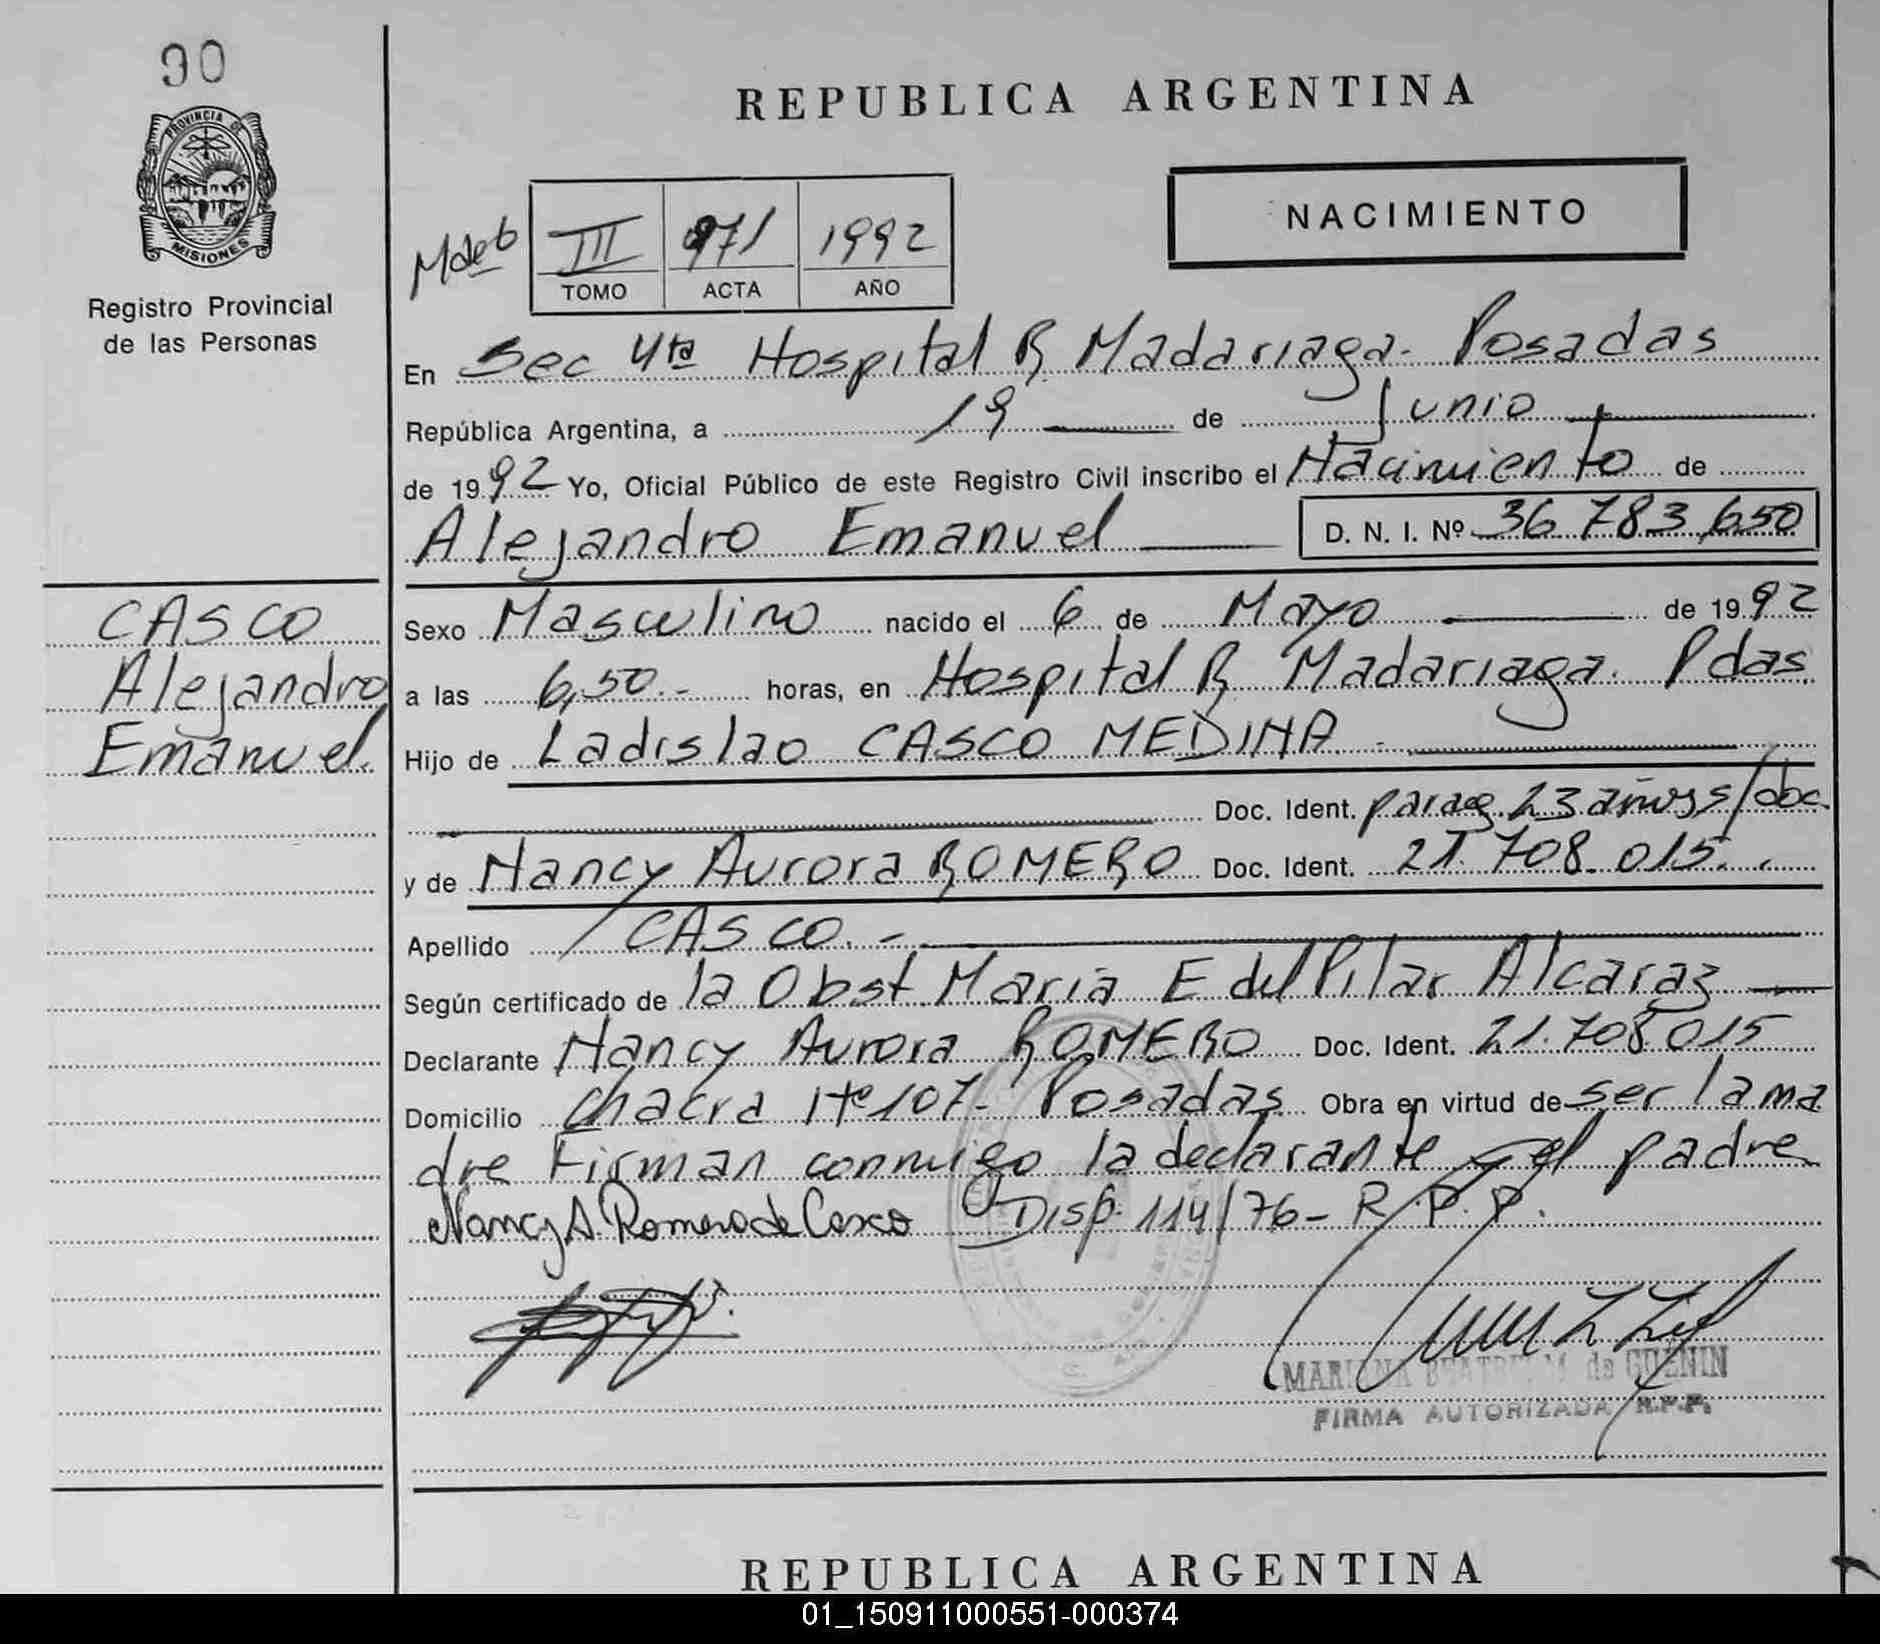 90
PROVINCIA DE
MISIONES
Registro Provincial
de las Personas
CASCO
Alejandro
Emanuel.
REPUBLICA ARGENTINA
NACIMIENTO
III 971 1992
TOMO ACTA AÑO
En Sec 4ta Hospital R Madariaga. Posadas
República Argentina, a 19 de Junio
de 1992 Yo, Oficial Público de este Registro Civil inscribo el Nacimiento de
Alejandro Emanuel D. N. I. Nº 36.783.650
Sexo Masculino nacido el 6 de Mayo de 1992
a las 6,50.- horas, en Hospital R Madariaga. Pdas
Hijo de Ladislao CASCO MEDINA -
Doc. Ident. parag. 23 años s/doc.
y de Nancy Aurora ROMERO Doc. Ident. 21.708.015.
Apellido CASCO.-
Según certificado de la Obst María E del Pilar Alcaraz
Declarante Nancy Aurora ROMERO Doc. Ident. 21.708.015
Domicilio Chacra Nº 107- Posadas Obra en virtud de ser la ma
dre Firman conmigo la declarante y el padre
Nancy A. Romero de Casco Disp. 114/76- R.P.P.
MARIANA BEATRIZ M. de GUENIN
FIRMA AUTORIZADA R.P.P.
REPUBLICA ARGENTINA
01_150911000551-000374